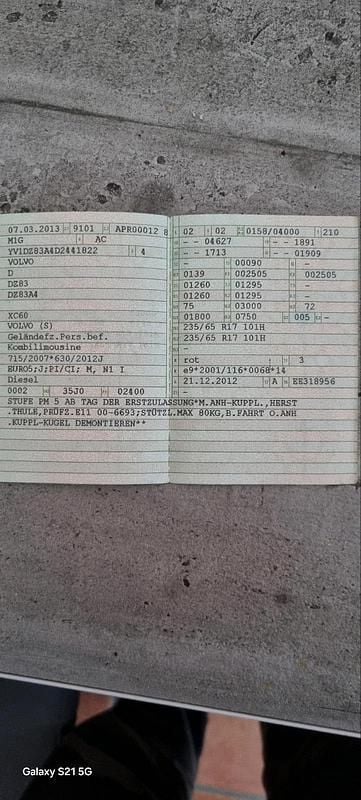 07.03.2013 9101 APR00012 8
M1G AC
YV1DZ83A4D2441822 4
VOLVO
D
DZ83
DZ83A4
XC60
VOLVO (S)
Geländefz.Pers.bef.
Kombilimousine
715/2007*630/2012J
EURO5;J;PI/CI; M, N1 I
Diesel
0002 35J0 02400
02 02 0158/04000 210
- - 04627 - - 1891
- - 1713 - - 01909
- 00090 -
0139 002505 002505
01260 01295 -
01260 01295 -
75 03000 72
01800 0750 005 -
235/65 R17 101H
235/65 R17 101H
-
rot 3
e9*2001/116*0068*14
21.12.2012 A EE318956
-
STUFE PM 5 AB TAG DER ERSTZULASSUNG*M.ANH-KUPPL.,HERST
.THULE,PRÜFZ.E11 00-6693;STÜTZL.MAX 80KG,B.FAHRT O.ANH
.KUPPL-KUGEL DEMONTIEREN**
Galaxy S21 5G